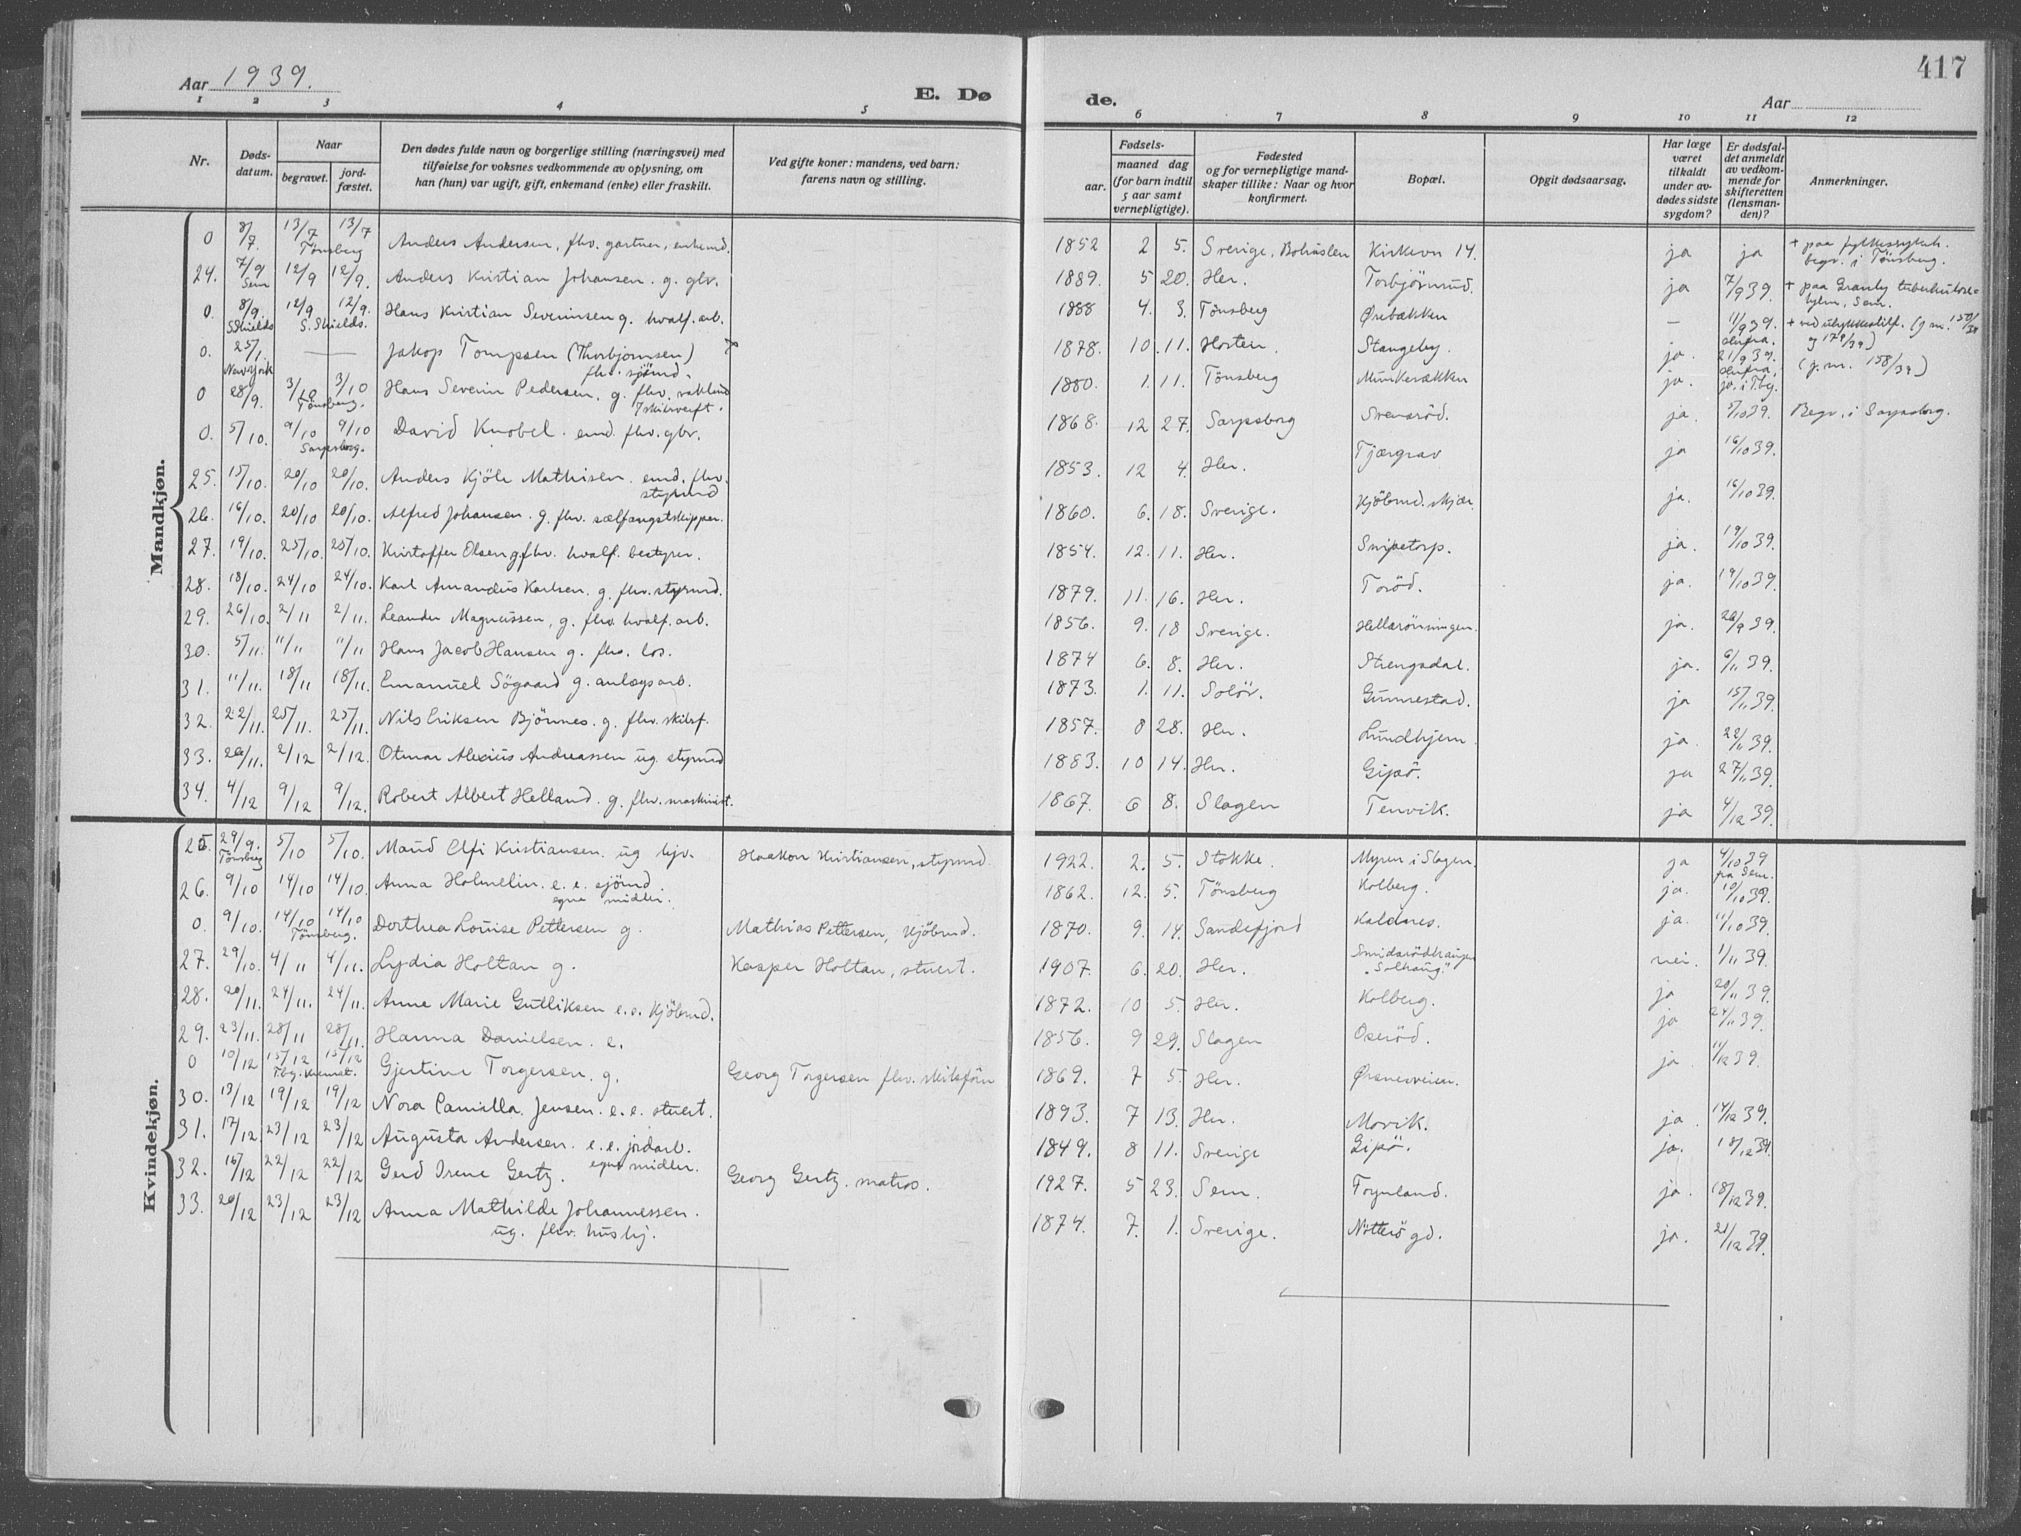 417
Aar 1939.
E. Dø de.
Aar
1 2 3 4 5 6 7 8 9 10 11 12
Nr. Døds-datum. Naar begravet. jord-fæstet. Den dødes fulde navn og borgerlige stilling (næringsvei) med tilføielse for voksnes vedkommende av oplysning, om han (hun) var ugift, gift, enkemand (enke) eller fraskilt. Ved gifte koner: mandens, ved barn: farens navn og stilling. Fødsels- aar. maaned dag (for barn indtil 5 aar samt vernepligtige). Fødested og for vernepligtige mand-skaper tillike: Naar og hvor konfirmert. Bopæl. Opgit dødsaarsag. Har læge været tilkaldt under av-dødes sidste sygdom? Er dødsfal-det anmeldt av vedkom-mende for skifteretten (lensman-den)? Anmerkninger.
Mandkjøn.
0 8/7. 13/7 13/7 Tönsberg Anders Andersen, fhv. gartner, enkemd. 1852 2 5. Sverige, Bohuslen Kirkevn 14. ja ja + paa fylkessykeh. begr. i Tönsberg.
24. 7/9 Sem 12/9 12/9. Anders Kristian Johansen. g. gbr. 1889. 5 20. Her. Torbjörnrud. ja 7/9 39. + paa Granly tuberkulosehjem, Sem.
0. 8/9. S.Shields 12/9 12/9. S. Shields. Hans Kristian Severinsen g. hvalf. arb. 1888 4. 3. Tönsberg Ørebækken — 11/9 39. + ved ulykkestilf. (j.nr. 150/39 og 178/39)
0. 25/1. New York — — Jakop Tompsen (Thorbjørnsen) fhv. sjömd. 1878. 10. 11. Horten. Stangeby. ja. 21/9 39. (j.nr. 158/39)
0 28/9. 3/10 3/10 Tönsberg. Hans Severin Pedersen, g. fhv. i skibsverft. 1880. 1. 11. Tönsberg Munkerækken ja. jo. i Tbg.
0. 5/10. 9/10 9/10 Sarpsborg. David Knobel. emd. fhv. gbr. 1868. 12 27. Sarpsborg Svensröd. ja. 5/10 39. Begr. i Sarpsborg.
25. 15/10. 20/10 20/10. Anders Kjöle Mathisen. emd. fhv. styrmd 1853. 12 4. Her. Tjærgrav ja 16/10 39.
26. 16/10. 20/10 20/10. Alfred Johansen. g. fhv. selfangstskipper. 1860. 6. 18. Sverige. Kjöbmd. Skjær ja. 16/10 39.
27. 19/10. 25/10. 25/10. Kristoffer Olsen g. fhv. hvalf. bestyrer. 1854. 12. 11. Her. Snipetorp. ja. 19/10 39.
28. 18/10. 24/10 24/10. Karl Amandus Karlsen. g. fhv. styrmd. 1879. 11. 16. Her. Toröd. ja. 19/10 39.
29. 26/10. 2/11 2/11. Leander Magnussen, g. fhv. hvalf. arb. 1856. 9. 18 Sverige. Hellarönningen. ja. 28/9 39.
30. 5/11. 11/11 11/11 Hans Jacob Hansen g. fhv. los. 1874 6. 8. Her. Strengsdal. ja. 6/11 39.
31. 11/11. 18/11 18/11. Emanuel Sögaard g. anlegsarb. 1873. 1. 11. Solör. Gunnestad. ja 15/11 39.
32. 22/11. 25/11. 25/11. Nils Eriksen Bjönnes. g. fhv. skibsf. 1857. 8 28. Her. Lundhjem. ja. 22/11 39.
33. 26/11. 2/12 2/12. Otmar Alexius Andreassen ug. styrmd 1883. 10 14. Her. Gipö. ja 27/11 39.
34. 4/12 9/12 9/12. Robert Albert Helland. g. fhv. maskinist. 1867. 6 8. Slagen Tenvik. ja 4/12 39.
Kvindekjøn.
25. 29/9. Tönsberg 5/10 5/10. Maud Elfi Kristiansen. ug. hjv. Haakon Kristiansen, styrmd. 1922. 2. 5. Stokke. Myren i Slagen. ja 4/10 39 fra Sem.
26. 9/10 14/10 14/10. Anna Holmelin. e. e. sjömd. egne midler. 1862. 12. 5. Tönsberg Kolberg. ja. 10/10 39.
0. 9/10. 14/10 14/10 Tönsberg. Dorthea Louise Pettersen g. Mathias Pettersen, kjöbmd. 1870. 9. 14. Sandefjord Kaldnes. ja. 11/10 39.
27. 29/10. 4/11 4/11. Lydia Holtan g. Kasper Holtan, stuert. 1907. 6. 20. Her. "Solhaug." nei. 1/11 39.
28. 20/11. 24/11. 24/11. Anne Marie Gulliksen e. e. kjöbmd. 1872. 10 5. Her. Kolberg. ja 20/11 39.
29. 23/11. 28/11 28/11. Hanna Danielsen. e. 1856. 9 29. Slagen Oseröd. ja 24/11 39.
0 10/12 15/12 15/12 Tbg. kremat. Gjertine Torgersen. g. Georg Torgersen fhv. skibsförer 1869. 7 5. Her. Ørsnesveien. ja 11/12 39.
30. 13/12 19/12 19/12 Nora Camilla Jensen. e. e. stuert. 1893. 7 13. Her. Movik. ja. 14/12 39.
31. 17/12 23/12 23/12 Augusta Andersen. e. e. jordarb. egne midler. 1849. 8 11. Sverige Gipö. ja. 18/12 39.
32. 16/12 22/12 22/12 Gerd Irene Gertz. Georg Gertz. matros. 1927. 5 23. Sem. Foynland. ja. 18/12 39.
33. 20/12 23/12 23/12 Anna Mathilde Johannessen. ug. fhv. hushj. 1874. 7. 1. Sverige. Nötterö gd. ja. 21/12 39.